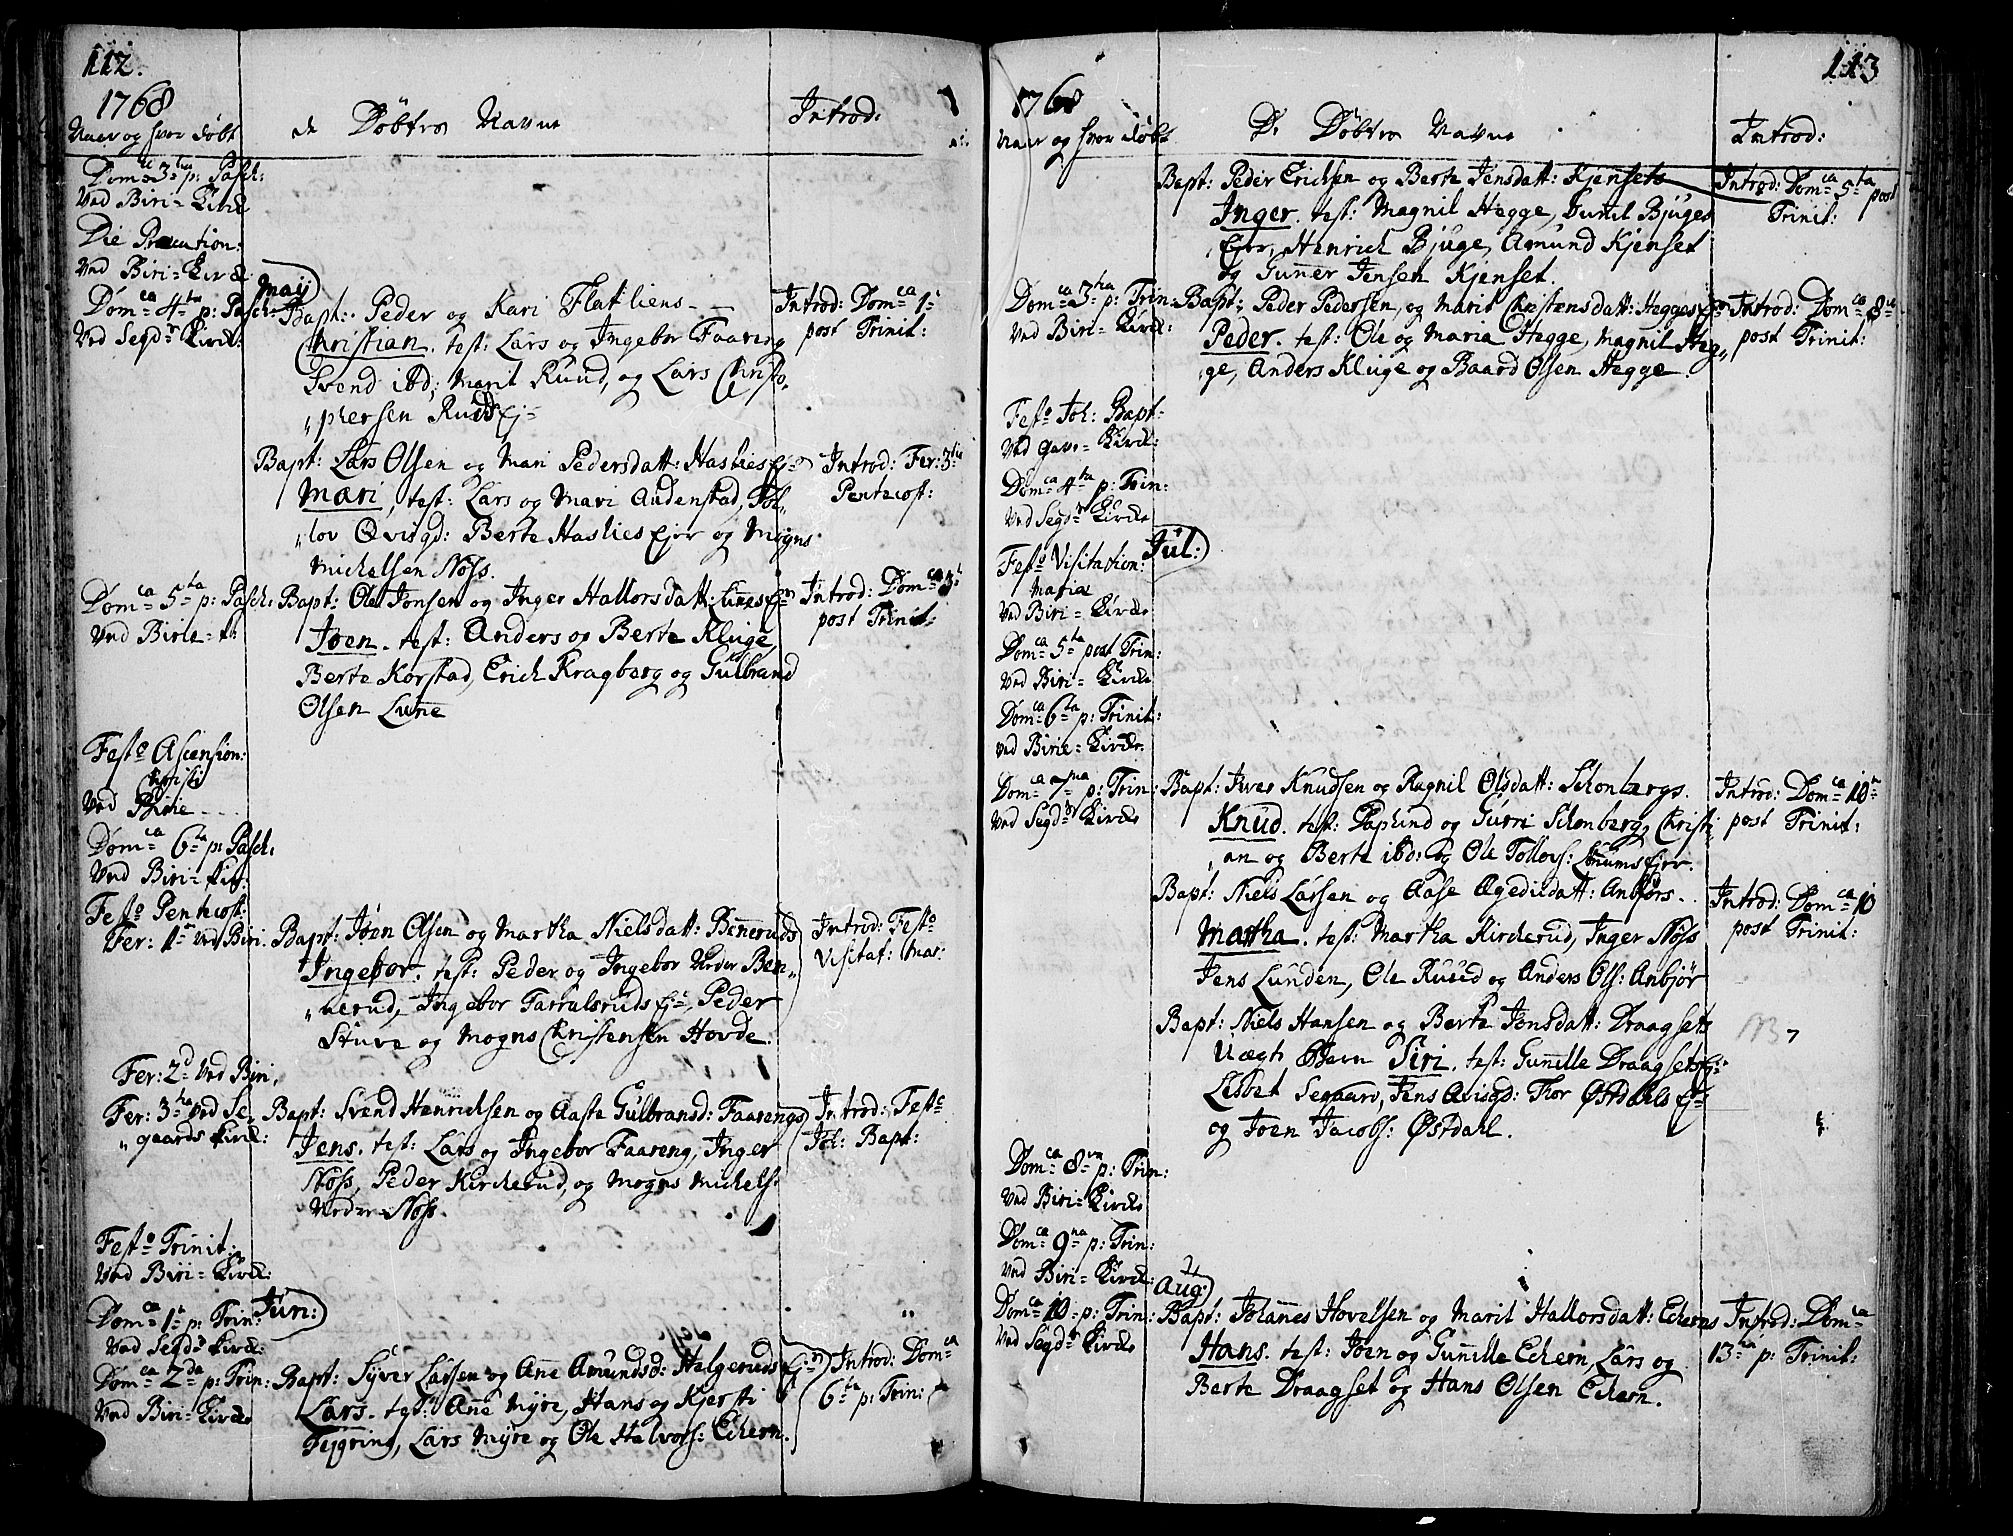 112.
1768
Naar og hvor døbt
de Döbtes Navne
Introd:
Dom: 3tia p: Pasch:
Ved Biri-Kirck
Die Precation:
Ved Biri-Kirck
Domca 4ta p: Pasch:
Ved Segdr Kirck:
Maij
Bapt: Peder og Kari Flatliens
Christian. test: Lars og Ingebor Faareng
Svend ibd; Marit Ruud, og Lars Christo,
„phersen Ruds Ej=
Introd: Domca 1=
post Trinit:
Bapt: Lars Olsen og Mari Pedersdatt: Haslies Ej=
Mari, test: Lars og Mari Audenstad, Tol,
„lov Qvisgd: Berte Haslies Ejer og Mogns
Michelsen Nöss.
Introd: Fer: 3tia
Pentecost:
Domca 5ta p: Pasch:
Ved Birie-k:
Bapt: Ole Jonsen og Inger Hallorsdatt: Lunes Ej=
Joen. test: Anders og Berte Kluge,
Berte Korstad, Erich Kragberg og Gulbrand
Olsen Lune
Introd: Domca 3=
post Trinit:
Festo Ascension:
Christi
Ved Birie
Domca 6ta p: Pasch:
Ved Biri-Kir:
Festo Pentecost:
Fer: 1= Ved Biri.
Bapt: Joen Olsen og Martha Nielsdatt: Beneruds
Ingebor. test: Peder og Ingebor Neder Ben„
„nerud, Ingebor Tarralsruds Ej=, Peder
Stuve og Mogns Christensen Hovde.
Introd: Festo
Visitat: Mar:
Fer: 2d Ved Biri.
Fer: 3tia ved Se,
„gaards Kirck:
Bapt: Svend Henrichsen og Aaste Gulbransd: Faarengs
Jens. test: Lars og Ingebor Faareng, Inger
Nöss, Peder Kirckerud, og Mogns Michels:
Nedre Nöss.
Introd: Festo
Joh: Bapt:
Festo Trinit:
Ved Biri-Kirck:
Domca 1= p: Trin:
Ved Segdr Kirck:
Jun:
Domca 2da p: Trin:
Ved Biri-Kirck
Bapt: Syver Larsen og Ane Amundsd: Helgeruds Ej=
Lars. test: Ane Myre, Hans og Kjersti
Tejgring, Lars Myre og Ole Halvors: Echern.
Introd: Domca
6ta p: Trin:
113
1768
Naar og hvor döbt
De Döbtes Navne
Introd:
Bapt: Peder Erichsen og Berte Jensdatt: Kjensets
Inger. test: Magnil Hegge, Gunil Bjuges
Ejer, Henrich Bjuge, Amund Kjenset
og Guner Jensen Kjenset.
Introd: Domca 5ta post
Trinit:
Domca 3tia p: Trin:
Ved Biri-Kirck:
Bapt: Peder Pedersen, og Marit Christensdatt: Hegges Ej=
Peder. test: Ole og Maria Hegge, Magnil Heg„
„ge, Anders Kluge og Baard Olsen Hegge.
Introd: Domca 8=
post Trinit:
Festo Joh: Bapt:
Ved Kirck:
Domca 4ta p: Trin:
Ved Segdr Kircke
Festo Visitation:
Mariæ
Ved Biri-Kircke
Jul:
Domca 5ta post Trin:
Ved Biri-Kircke
Domca 6ta p: Trinit:
Ved Birie-Kircke.
Domca 7ma p: Trin:
Ved Segdr Kircke
Bapt: Iver Knudsen og Ragnil Olsdatt: Schonbergs.
Knud. test: Paplund og Gurri Schonberg, Christi
„an og Berte ibd: og Ole Tollovs: Ejer.
Introd: Domca 10=
post Trinit:
Bapt: Niels Larsen og Aase Egedicdatt: Anbjörs.
Martha. test: Martha Kirckerud, Inger Nöss
Jens Lunden, Ole Ruud og Anders Ols: Anbjör
Introd: Domca 10
post Trinit:
Bapt: Niels Hansen og Berte Jonsdatt: Draagsets
Uægte Barn Siri. test: Gunille Draagsets Ej=
Lisbet Segaard, Jens Qvisgd: Thor Østdahls Ej=
og Joen Jacobs: Østdahl.
NB
Domca 8va p: Trin:
Ved Biri-Kircke
Domca 9na p: Trin:
Ved Biri-Kirck:
Domca 10- p: Trin:
Ved Segdr Kircke
Aug:
Bapt: Johanes Hovelsen og Marit Hallorsdatt: Echerns
Hans. test: Joen og Gunille Echern, Lars og
Berte Draagset og Hans Olsen Echern.
Introd: Domca
13tia p: Trinit: